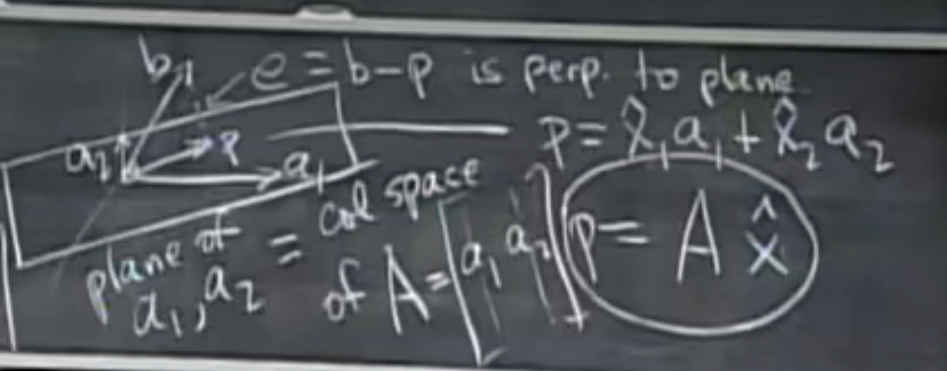 b e = b-p is perp. to plane
a₂ p a₁ p = x̂₁a₁ + x̂₂a₂
plane of a₁, a₂ = col space of A = [a₁ a₂]
p = A x̂